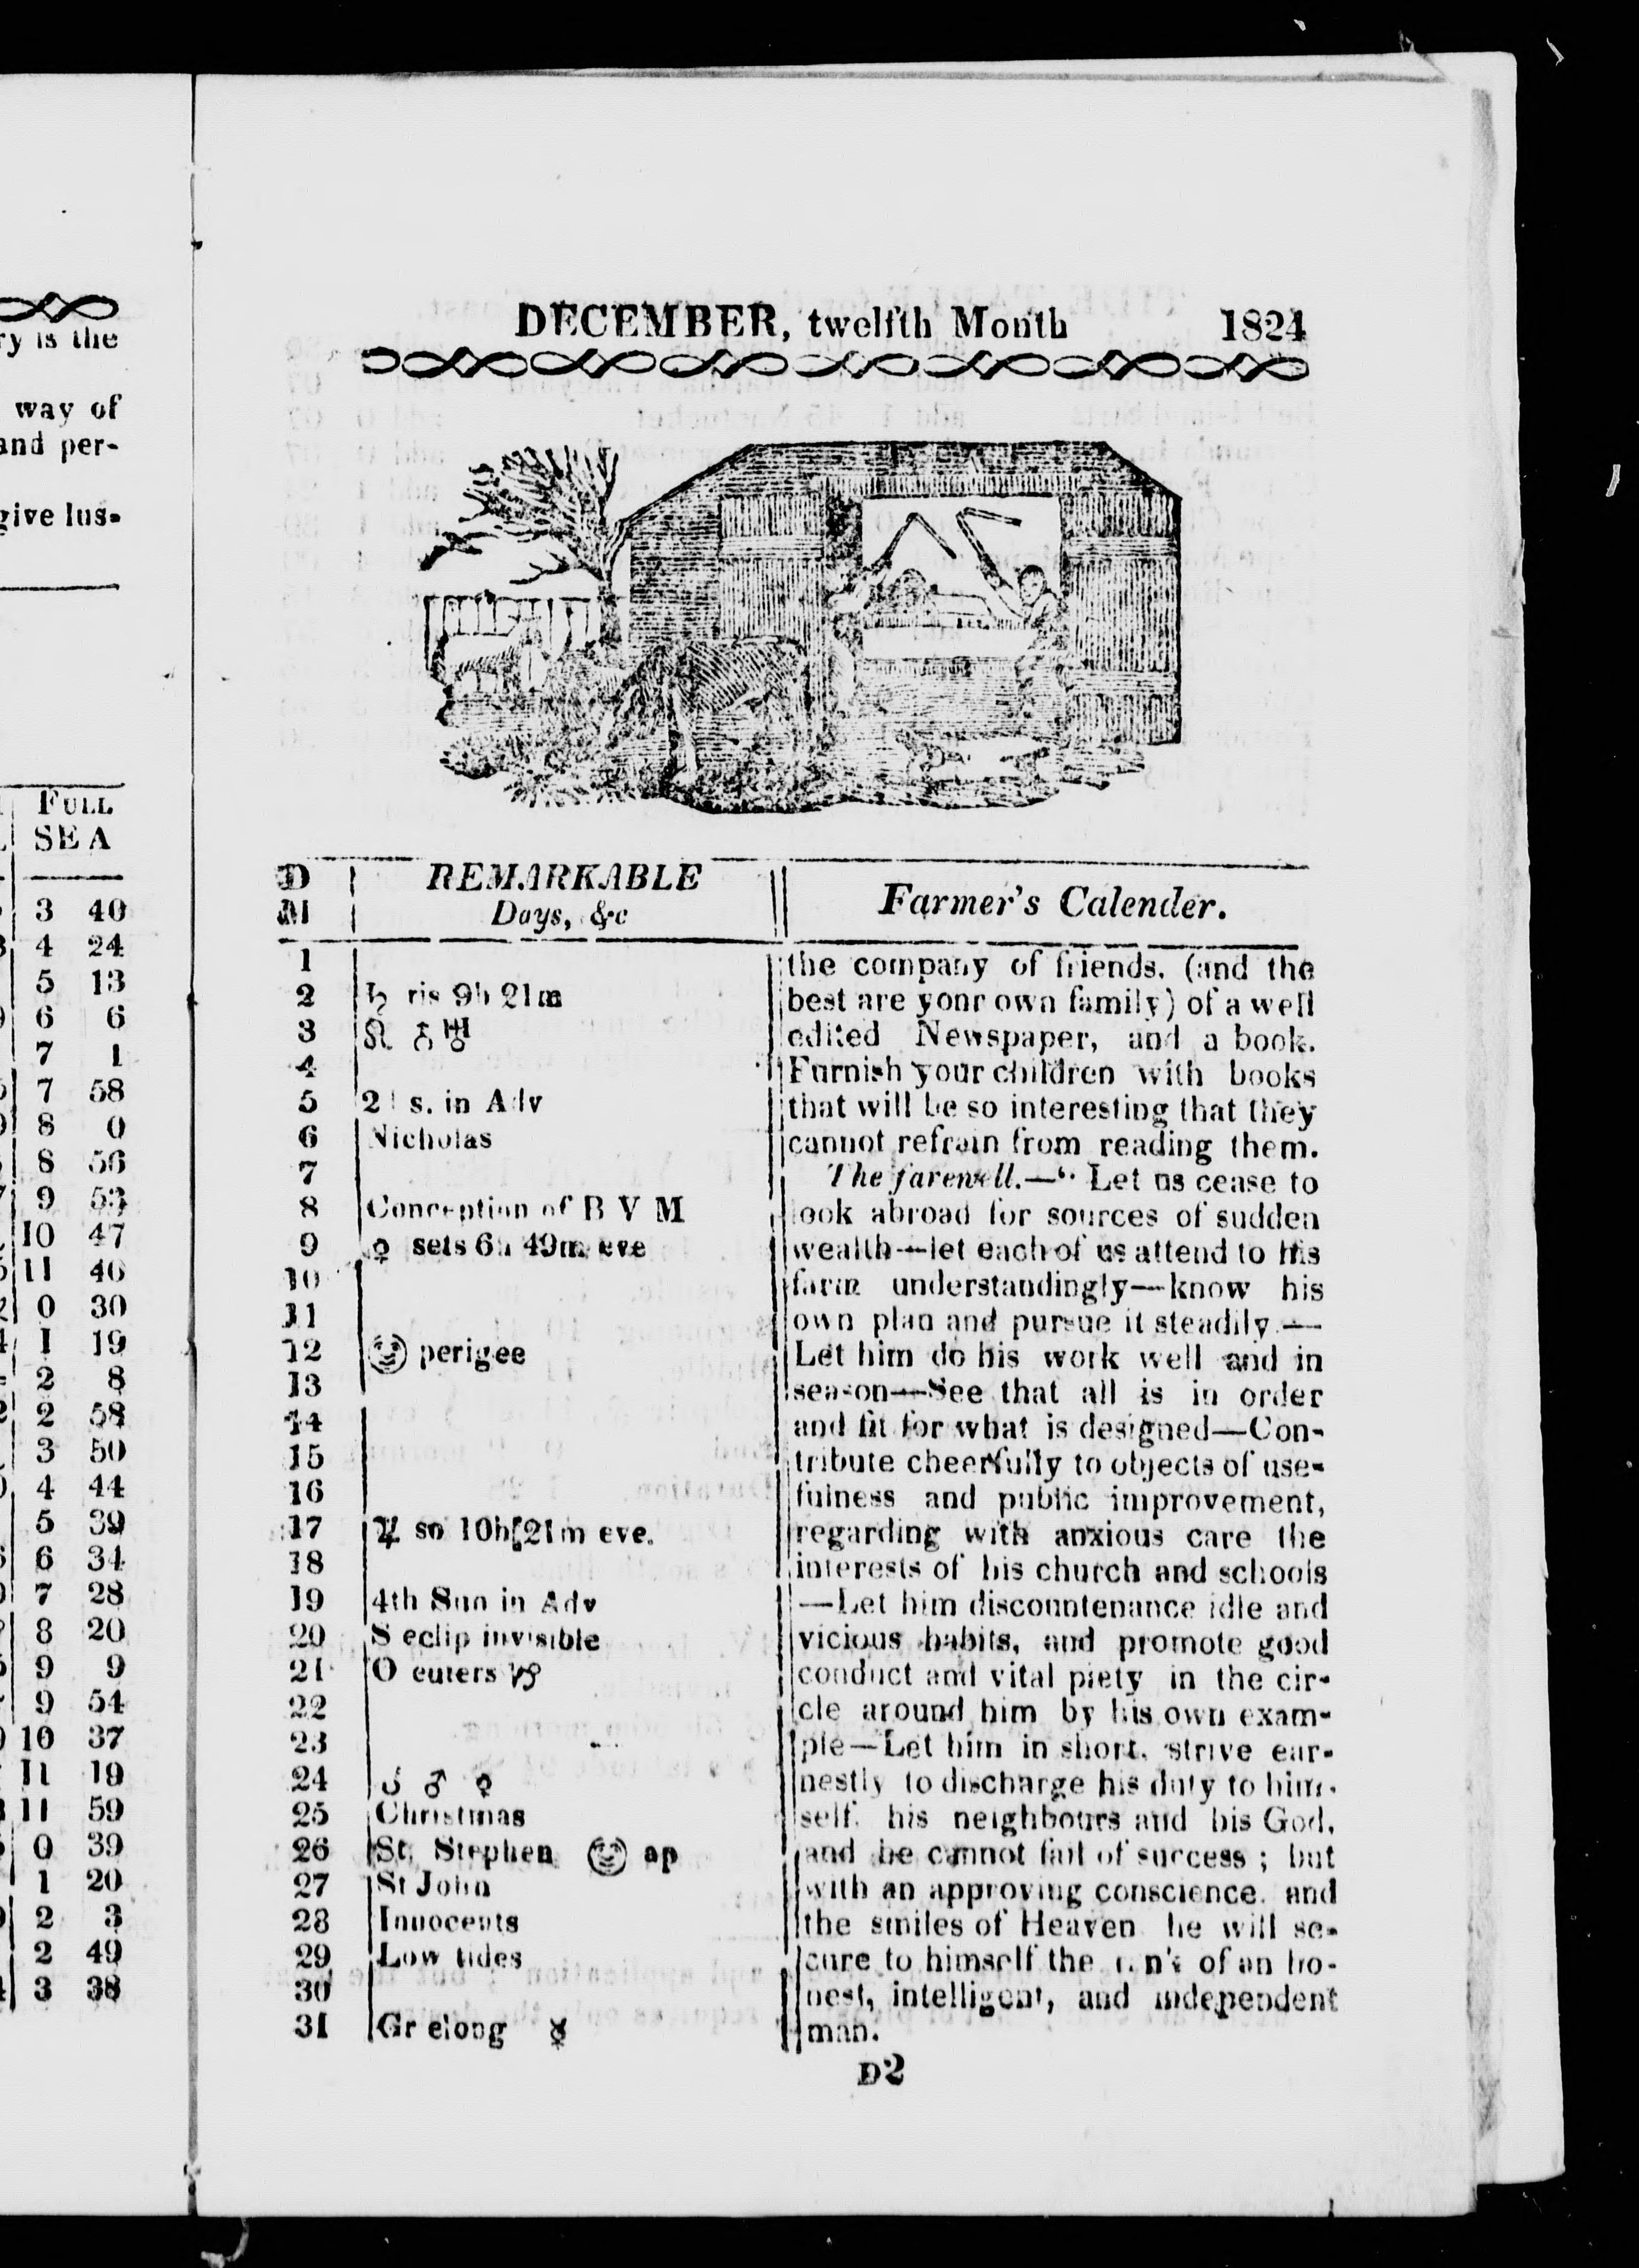 ry is the
way of
and per-
give lus-
FULL
SEA
3 40
4 24
5 13
6 6
7 1
7 58
8 0
8 56
9 53
10 47
11 46
0 30
1 19
2 8
2 58
3 50
4 44
5 39
6 34
7 28
8 20
9 9
9 54
10 37
11 19
11 59
0 39
1 20
2 3
2 49
3 38
DECEMBER, twelfth Month 1824
D REMARKABLE
M Days, &c
1
2 ♄ ris 9h 21m
3 ☊ ☌ ♅
4
5 2d s. in Adv
6 Nicholas
7
8 Conception of B V M
9 ♀ sets 6h 49m eve
10
11
12 perigee
13
14
15
16
17 ♃ so 10h 21m eve.
18
19 4th Sun in Adv
20 S eclip invisible
21 O enters ♑
22
23
24 ☌ ♂ ♀
25 Christmas
26 St. Stephen ap
27 St John
28 Innocents
29 Low tides
30
31 Gr elong ☿
Farmer's Calender.
the company of friends, (and the
best are yonr own family) of a well
edited Newspaper, and a book.
Furnish your children with books
that will be so interesting that they
cannot refrain from reading them.
The farewell.—“ Let us cease to
look abroad for sources of sudden
wealth—let each of us attend to his
farm understandingly—know his
own plan and pursue it steadily.—
Let him do his work well and in
season—See that all is in order
and fit for what is designed—Con-
tribute cheerfully to objects of use-
fulness and public improvement,
regarding with anxious care the
interests of his church and schools
—Let him discountenance idle and
vicious habits, and promote good
conduct and vital piety in the cir-
cle around him by his own exam-
ple—Let him in short, strive ear-
nestly to discharge his duty to him-
self, his neighbours and his God,
and he cannot fail of success ; but
with an approving conscience, and
the smiles of Heaven he will se-
cure to himself the of an ho-
nest, intelligent, and independent
man.
D2